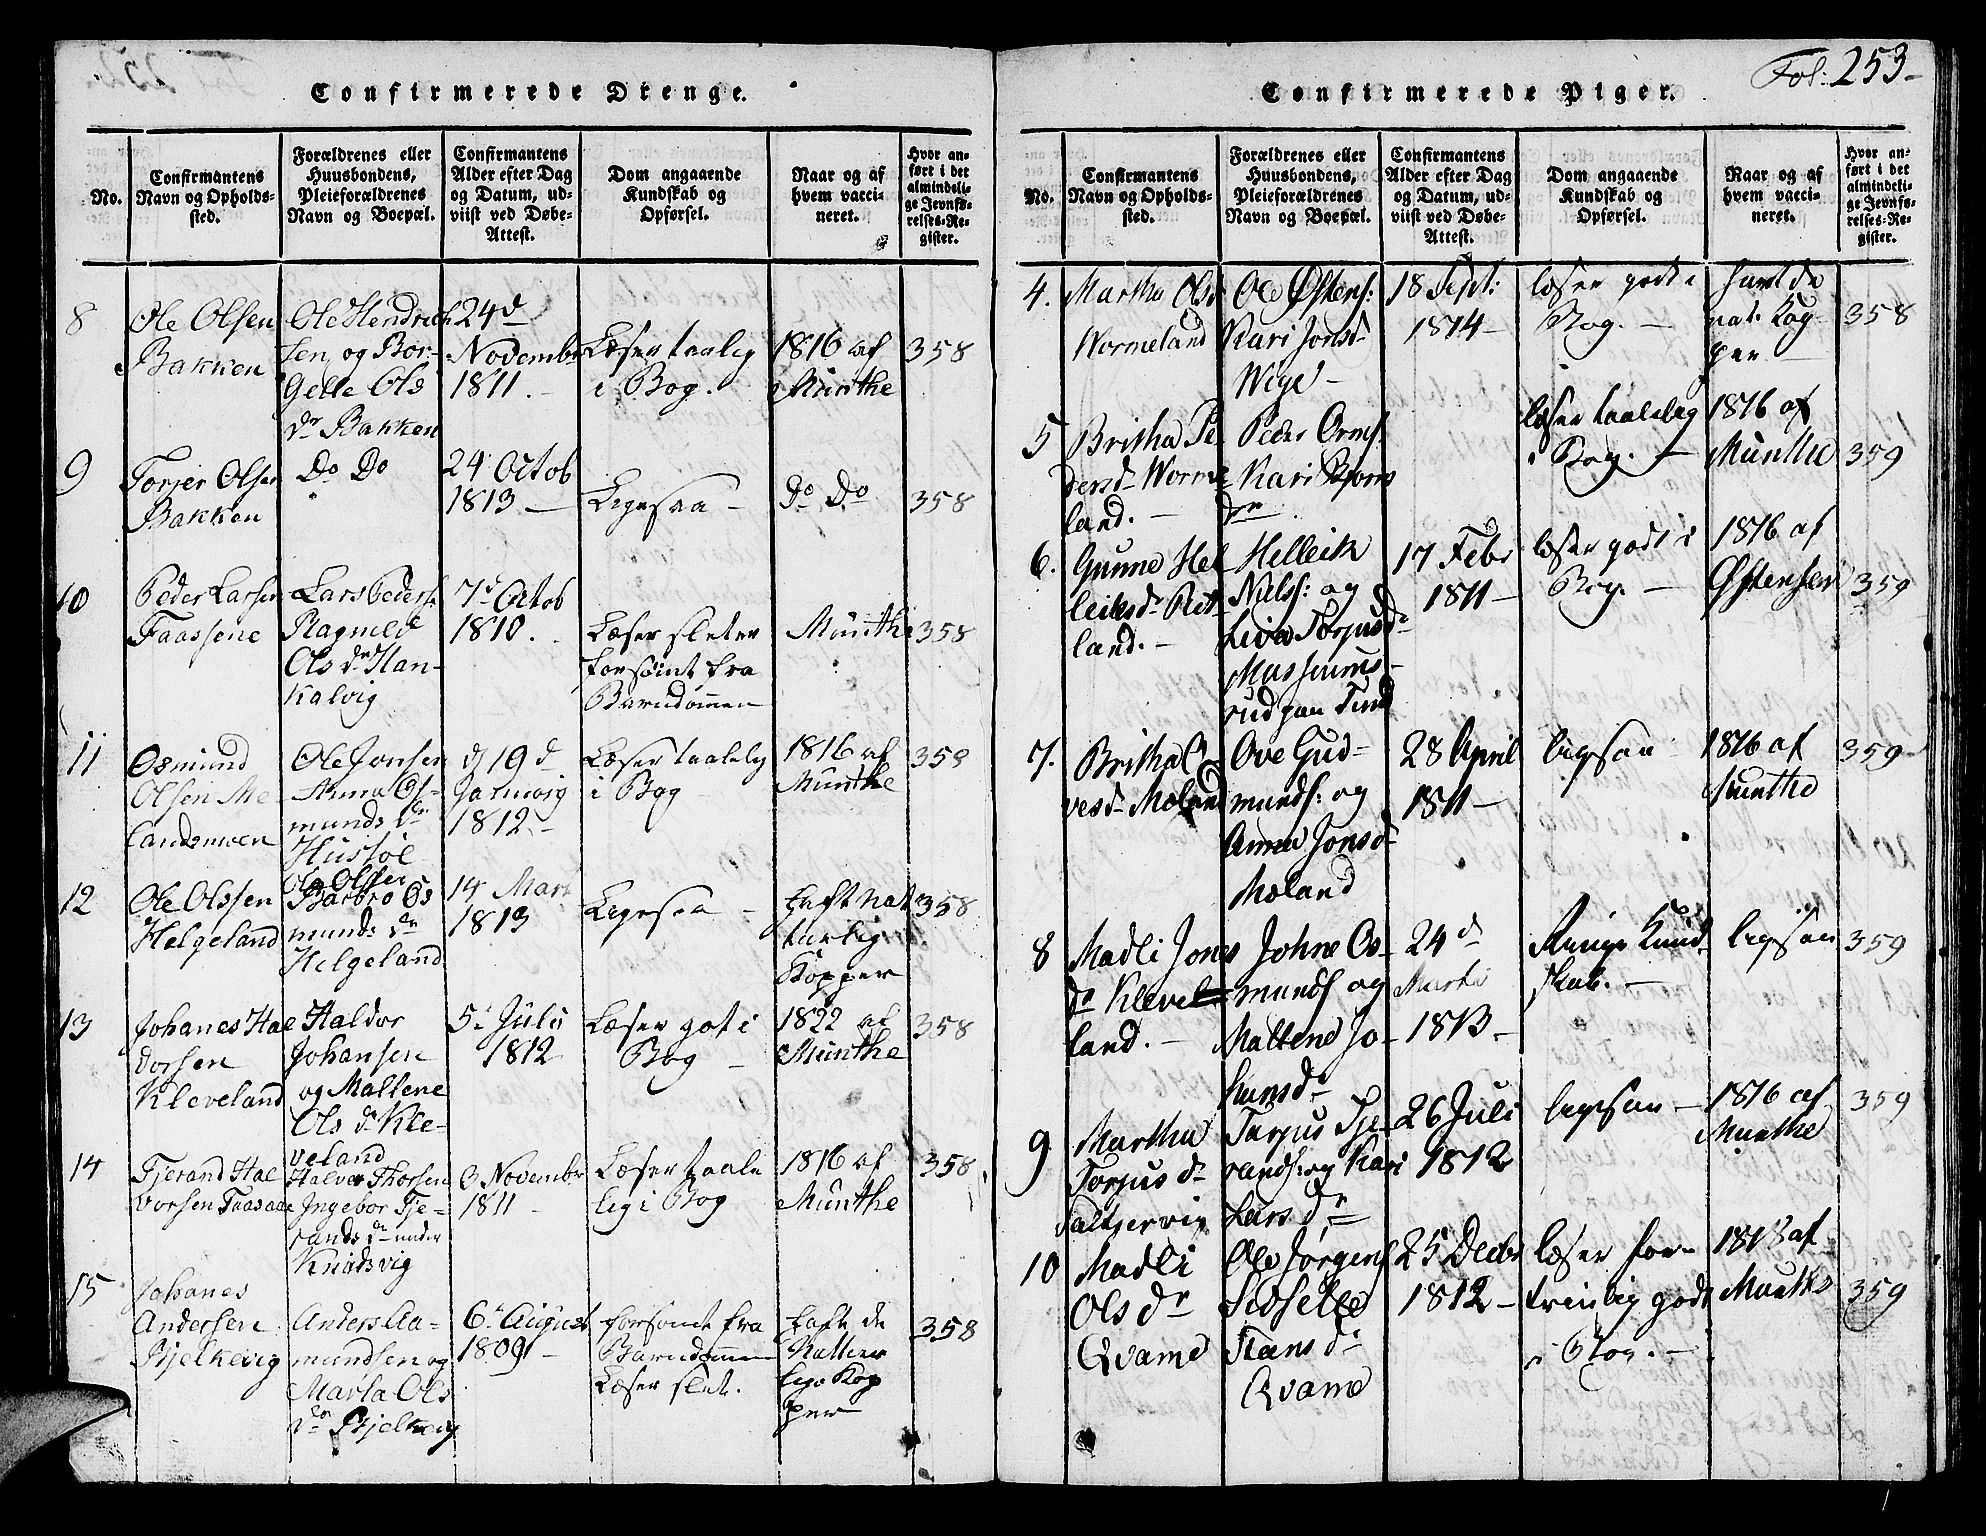 Confirmerede Drenge.
No.
Confirmantens
Navn og Opholds-
sted.
Forældrenes eller
Huusbondens,
Pleieforældrenes
Navn og Boepæl.
Confirmantens
Alder efter Dag
og Datum, ud-
viist ved Døbe-
Attest.
Dom angaaende
Kundskab og
Opførsel.
Naar og af
hvem vacci-
neret.
Hvor an-
ført i det
almindeli-
ge Jevnfø-
relses-Re-
gister.
8
Ole Olsen
Bakken
Ole Hendrich
sen, og Bor-
Gelle Ols
dr Bakken
24d
Novembr
1811.
Læser taalig
i Bog.
1816 af
Munthe
358
9
Torjer Olsen
Bakken
Do Do
24 Octob
1813 —
Ligesaa —
Do Do
358
10
Peder Larsen
Faassene
Lars Peders:
Ragnelde
Ols dr Han-
Kalvig
7d Octob
1810.
Læser sleter
forsømt fra
Barndommen
Munthe
358
11
Osmund
Olsen Me
landsmoen
Ole Jonsen
Anna Os-
munds dr
Hustøl
d 19d
1812 —
Læser taalelig
i Bog
1816 af
Munthe
358
12
Ole Olssen
Helgeland
Ole Olssen
Barbro Os
munds dr
Helgeland
14 Mart
1813
Ligesaa —
haft nat
turlig
Kopper
358
13
Johanes Hal
dorsen
Kleveland
Haldor
Johansen
og Mallene
Ols dr Kle-
veland
5. Juli
1812
Læser got i
Bog —
1822 af
Munthe
358
14
Tjerand Hal
vorsen Faasaae
Halver Thorsen
Ingebor Tje-
rands dr under
Knudsvig
3 Novembr
1811 —
Læser taale
lig i Bog
1816 af
Munthe
358
15
Johanes
Andersen
Bjelkevig
Anders Aa-
mundsen og
Marta Ols
dr Bjelkevig
6. August
1809 —
forsømt fra
Barndommen
Læser slet.
hafte de
Kop
per
358
Fol: 253 —
Confirmerede Piger.
No.
Confirmantens
Navn og Opholds-
sted.
Forældrenes eller
Huusbondens,
Pleieforældrenes
Navn og Boepæl.
Confirmantens
Alder efter Dag
og Datum, ud-
viist ved Døbe-
Attest.
Dom angaaende
Kundskab og
Opførsel.
Naar og af
hvem vacci-
neret.
Hvor an-
ført i det
almindeli-
ge Jevnfø-
relses-Re-
gister.
4.
Martha Olsd
Wormeland
Ole Østens:
Kari Jonsd
Wege —
18 Sept:
1814 —
læser godt i
Bog. —
havt de
nat. Kop-
per —
358
5
Britha Pe
dersdr Worme
land. —
Peder Orms:
Kari Bjorns
dr
læser taaleleg
i Bog. —
1816 af
Munthe
359
6.
Gunne Hel
leiksdr Ret
land. —
Helleik
Nilss: og
Liva Torjusdr
rud paa Tind
17 Febr
1811 —
læser godt i
Bog. —
1816 af
Østensen
359
7.
Britha O
vesdr Moland
Ove Gud-
munds: og
Anna Jonsdr
Moland
28 April
1811 —
ligesaa —
1816 af
Munthe
359
8
Madli Jons
dr Klevel
land. —
Johne Os-
munds og
Mallene Jo-
hansdr
24d
Marti
1813 —
Ringe Kund-
skab. —
ligesaa
359
9
Martha
Torjus dr
Saltjervig
Torjus Tje-
rands: og Kari
Larsdr
26 Juli
1812
ligesaa —
1816 af
Munthe
359
10
Madli
Ols dr
Qvame
Ole Jørgens
Sidselle
Stensdr
Qvame
25 Decbr
1812 —
læser for-
trinlig godt
i Bog. —
1818 af
Munthe
359